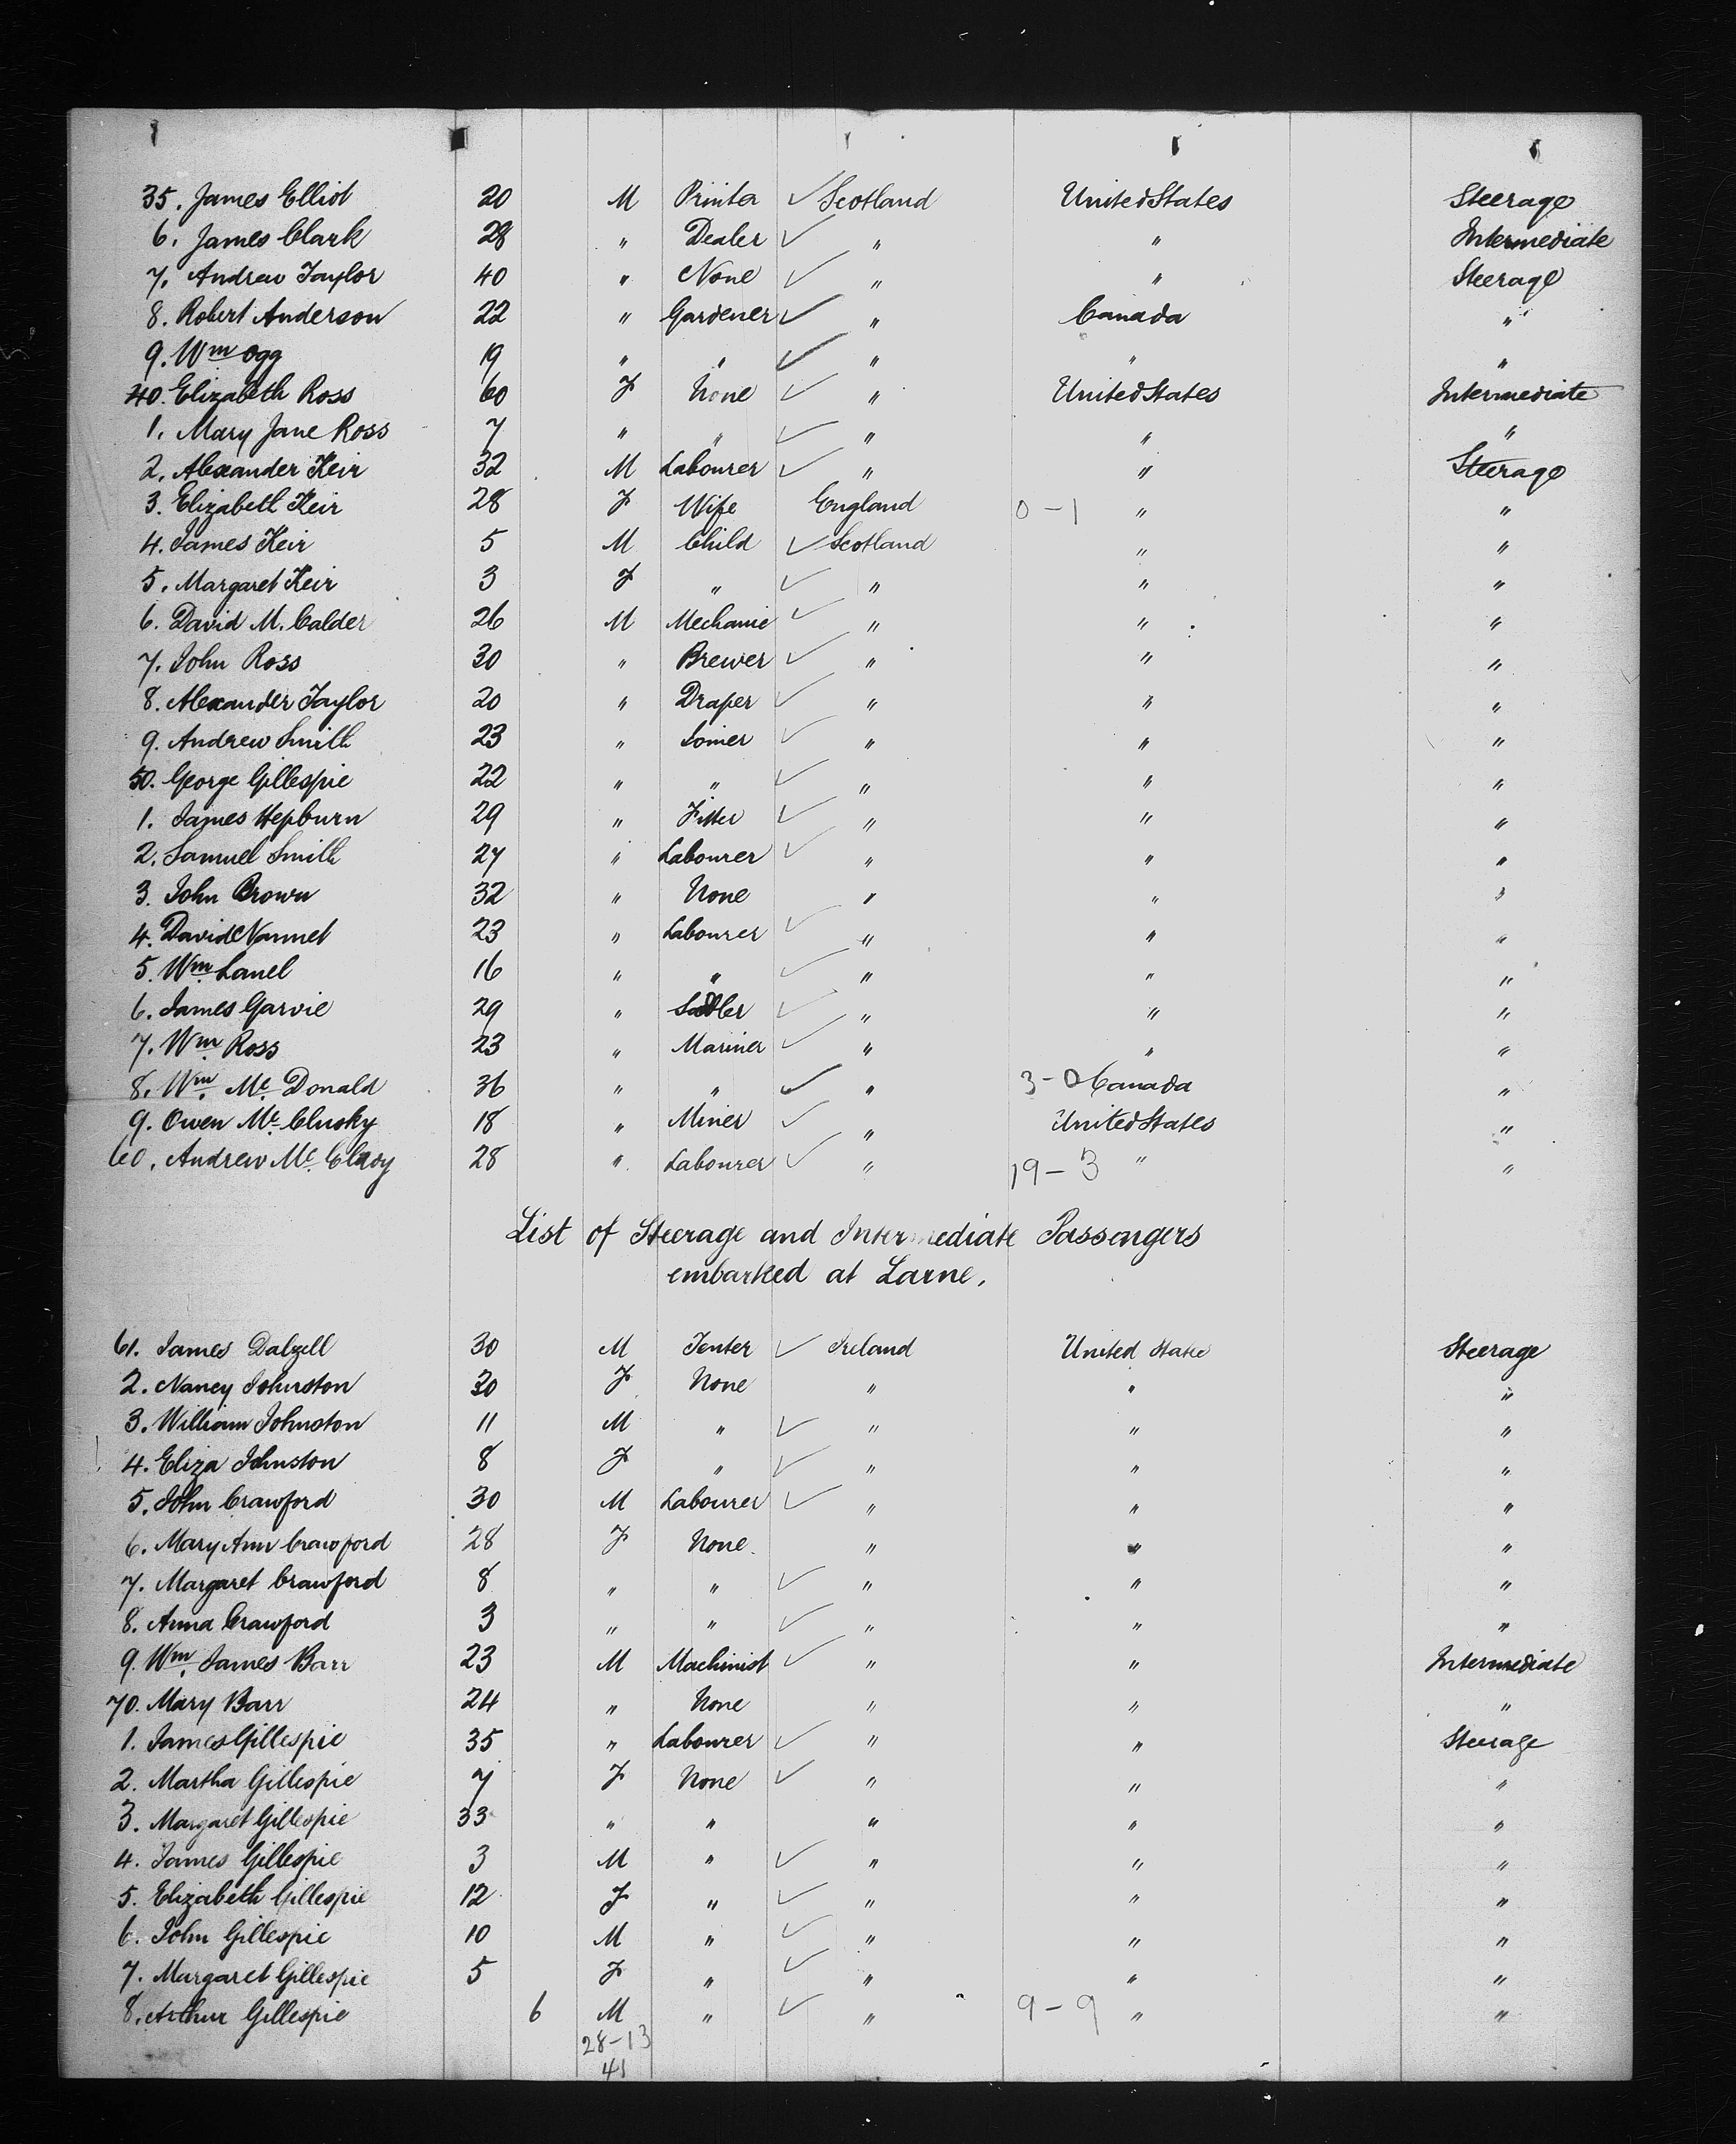 35. James Elliot 20 M Printer ✓ Scotland United States Steerage
6. James Clark 28 " Dealer ✓ " " Intermediate
7. Andrew Taylor 40 " None ✓ " " Steerage
8. Robert Anderson 22 " Gardener ✓ " Canada "
9. Wm Ogg 19 " " ✓ " " "
40. Elizabeth Ross 60 F None ✓ " United States Intermediate
1. Mary Jane Ross 7 " " ✓ " " "
2. Alexander Keir 32 M Labourer ✓ " " Steerage
3. Elizabeth Keir 28 F Wife England 0-1 " "
4. James Keir 5 M Child ✓ Scotland " "
5. Margaret Keir 3 F " ✓ " " "
6. David M. Calder 26 M Mechanic ✓ " " "
7. John Ross 30 " Brewer ✓ " " "
8. Alexander Taylor 20 " Draper ✓ " " "
9. Andrew Smith 23 " Joiner ✓ " " "
50. George Gillespie 22 " " ✓ " " "
1. James Hepburn 29 " Fitter ✓ " " "
2. Samuel Smith 27 " Labourer ✓ " " "
3. John Brown 32 " None " " "
4. David 23 " Labourer ✓ " " "
5. Wm 16 " " ✓ " " "
6. James Garvie 29 " Sadler ✓ " " "
7. Wm. Ross 23 " Mariner ✓ " " "
8. Wm. Mc. Donald 36 " " ✓ " 3-0 Canada "
9. Owen Mc. Clusky 18 " Miner ✓ " United States "
60. Andrew Mc. 28 " Labourer ✓ " 19-3 " "
List of Steerage and Intermediate Passengers
embarked at Larne.
61. James Dalzell 30 M Tenter ✓ Ireland United State Steerage
2. Nancy Johnston 30 F None " " "
3. William Johnston 11 M " ✓ " " "
4. Eliza Johnston 8 F " ✓ " " "
5. John Crawford 30 M Labourer ✓ " " "
6. Mary Ann Crawford 28 F None " " "
7. Margaret Crawford 8 " " ✓ " " "
8. Anna Crawford 3 " " ✓ " " "
9. Wm. James Barr 23 M Machinist ✓ " " Intermediate
70. Mary Barr 24 " None " " "
1. James Gillespie 35 " Labourer ✓ " " Steerage
2. Martha Gillespie 7 F None ✓ " " "
3. Margaret Gillespie 33 " " " " "
4. James Gillespie 3 M " ✓ " " "
5. Elizabeth Gillespie 12 F " ✓ " " "
6. John Gillespie 10 M " ✓ " " "
7. Margaret Gillespie 5 F " ✓ " " "
8. Arthur Gillespie 6 M " ✓ " 9-9 " "
28-13
41